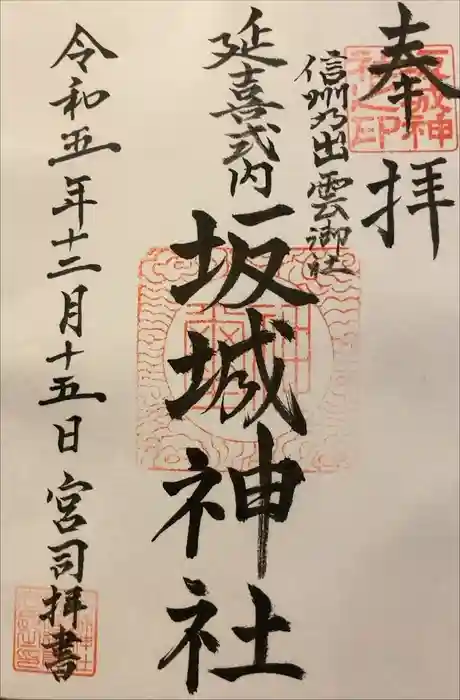 奉拝
坂城神社之印
信州乃出雲御社
延喜式内
坂城神社
令和五年十二月十五日 宮司拝書